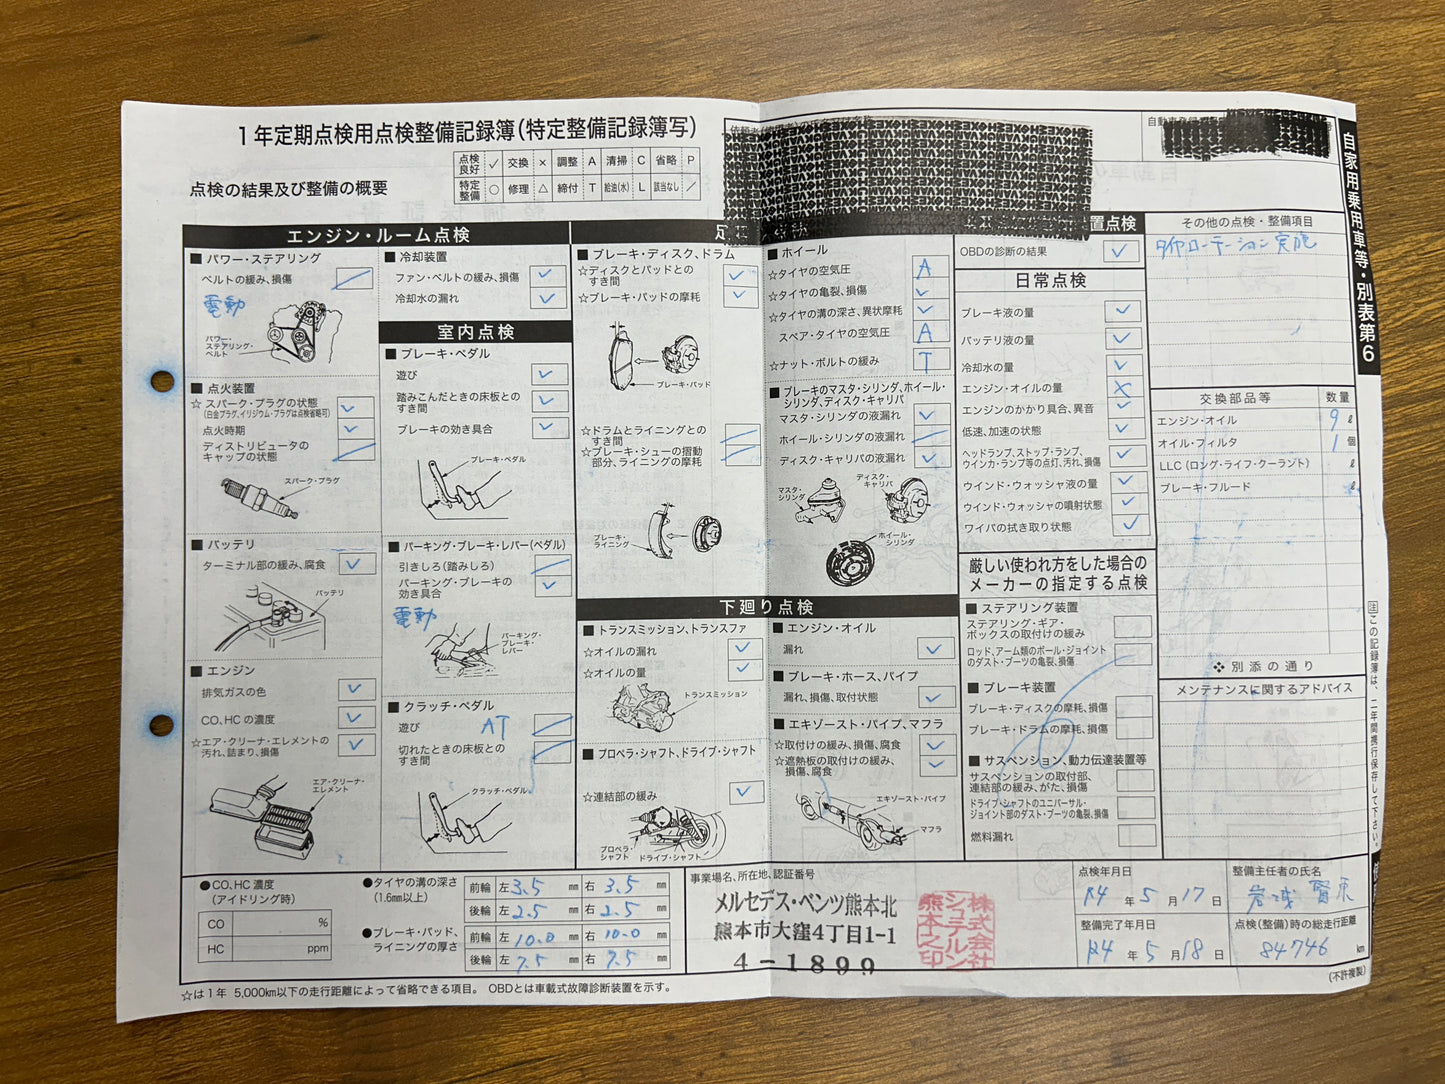 1年定期点検用点検整備記録簿(特定整備記録簿写)
点検良好 ✓ 交換 × 調整 A 清掃 C 省略 P
特定整備 ○ 修理 △ 締付 T 給油(水) L 該当なし ／
点検の結果及び整備の概要
自家用乗用車等・別表第6
エンジン・ルーム点検
■ パワー・ステアリング
ベルトの緩み、損傷
電動
パワー・ステアリング・ベルト
■ 点火装置
☆スパーク・プラグの状態
(白金プラグ、イリジウム・プラグは点検省略可)
点火時期 ✓
ディストリビュータの
キャップの状態
スパーク・プラグ
■ バッテリ
ターミナル部の緩み、腐食 ✓
バッテリ
■ エンジン
排気ガスの色 ✓
CO、HCの濃度 ✓
☆エア・クリーナ・エレメントの
汚れ、詰まり、損傷 ✓
エア・クリーナ・エレメント
■ 冷却装置
ファン・ベルトの緩み、損傷 ✓
冷却水の漏れ ✓
室内点検
■ ブレーキ・ペダル
遊び ✓
踏みこんだときの床板との
すき間 ✓
ブレーキの効き具合 ✓
ブレーキ・ペダル
■ パーキング・ブレーキ・レバー(ペダル)
引きしろ(踏みしろ)
パーキング・ブレーキの
効き具合 ✓
電動
パーキング・ブレーキ・レバー
■ クラッチ・ペダル
遊び AT
切れたときの床板との
すき間
クラッチ・ペダル
■ ブレーキ・ディスク、ドラム
☆ディスクとパッドとの
すき間 ✓
☆ブレーキ・パッドの摩耗 ✓
ブレーキ・パッド
☆ドラムとライニングとの
すき間
☆ブレーキ・シューの摺動
部分、ライニングの摩耗
ブレーキ・ライニング
■ ホイール
☆タイヤの空気圧 A
☆タイヤの亀裂、損傷 ✓
☆タイヤの溝の深さ、異状摩耗 ✓
スペア・タイヤの空気圧 A
☆ナット・ボルトの緩み T
■ ブレーキのマスタ・シリンダ、ホイール・
シリンダ、ディスク・キャリパ
マスタ・シリンダの液漏れ ✓
ホイール・シリンダの液漏れ
ディスク・キャリパの液漏れ ✓
マスタ・シリンダ
ディスク・キャリパ
ホイール・シリンダ
下廻り点検
■ トランスミッション、トランスファ
☆オイルの漏れ ✓
☆オイルの量 ✓
トランスミッション
■ プロペラ・シャフト、ドライブ・シャフト
☆連結部の緩み ✓
プロペラ・シャフト
ドライブ・シャフト
■ エンジン・オイル
漏れ ✓
■ ブレーキ・ホース、パイプ
漏れ、損傷、取付状態 ✓
■ エキゾースト・パイプ、マフラ
☆取付けの緩み、損傷、腐食 ✓
☆遮熱板の取付けの緩み、
損傷、腐食 ✓
エキゾースト・パイプ
マフラ
置点検
OBDの診断の結果 ✓
日常点検
ブレーキ液の量 ✓
バッテリ液の量 ✓
冷却水の量 ✓
エンジン・オイルの量 ×
エンジンのかかり具合、異音 ✓
低速、加速の状態 ✓
ヘッドランプ、ストップ・ランプ、
ウインカ・ランプ等の点灯、汚れ、損傷 ✓
ウインド・ウォッシャ液の量 ✓
ウインド・ウォッシャの噴射状態 ✓
ワイパの拭き取り状態 ✓
厳しい使われ方をした場合の
メーカーの指定する点検
■ ステアリング装置
ステアリング・ギア・
ボックスの取付けの緩み
ロッド、アーム類のボール・ジョイント
のダスト・ブーツの亀裂、損傷
■ ブレーキ装置
ブレーキ・ディスクの摩耗、損傷
ブレーキ・ドラムの摩耗、損傷
■ サスペンション、動力伝達装置等
サスペンションの取付部、
連結部の緩み、がた、損傷
ドライブ・シャフトのユニバーサル・
ジョイント部のダスト・ブーツの亀裂、損傷
燃料漏れ
その他の点検・整備項目
タイヤローテーション実施
交換部品等 数量
エンジン・オイル 9 ℓ
オイル・フィルタ 1 個
LLC(ロング・ライフ・クーラント) ℓ
ブレーキ・フルード ℓ
❖ 別添の通り
メンテナンスに関するアドバイス
注 この記録簿は、二年間携行保存して下さい。
●CO、HC濃度
(アイドリング時)
CO %
HC ppm
●タイヤの溝の深さ
(1.6mm以上)
前輪 左 3.5 mm 右 3.5 mm
後輪 左 2.5 mm 右 2.5 mm
●ブレーキ・パッド、
ライニングの厚さ
前輪 左 10.0 mm 右 10.0 mm
後輪 左 7.5 mm 右 7.5 mm
事業場名、所在地、認証番号
メルセデス・ベンツ熊本北
熊本市大窪4丁目1-1
4-1899
株式会社シュテルン熊本之印
点検年月日
R4 年 5 月 17 日
整備完了年月日
R4 年 5 月 18 日
整備主任者の氏名
点検(整備)時の総走行距離
84746 km
(不許複製)
☆は1年 5,000km以下の走行距離によって省略できる項目。 OBDとは車載式故障診断装置を示す。